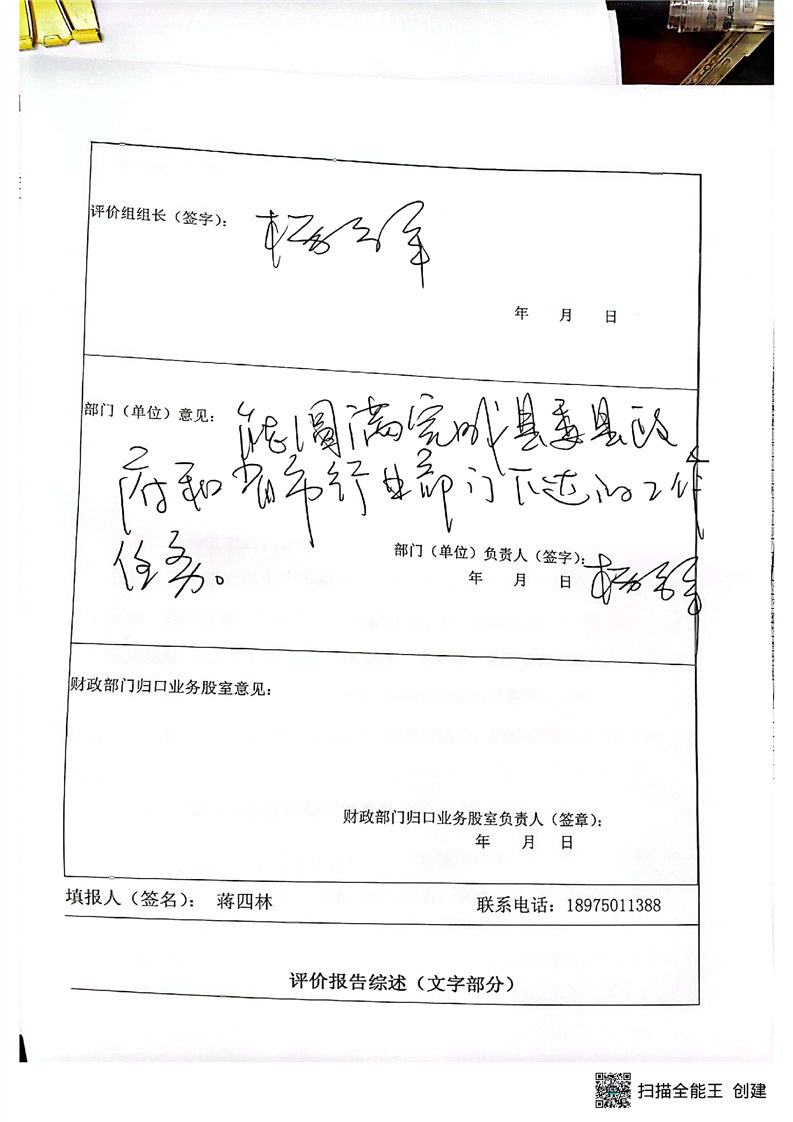 评价组组长（签字）：
年 月 日
部门（单位）意见： 能圆满完成县委县政
府和省市行业部门下达的工作
任务。
部门（单位）负责人（签字）：
年 月 日
财政部门归口业务股室意见：
财政部门归口业务股室负责人（签章）：
年 月 日
填报人（签名）： 蒋四林 联系电话：18975011388
评价报告综述（文字部分）
扫描全能王 创建